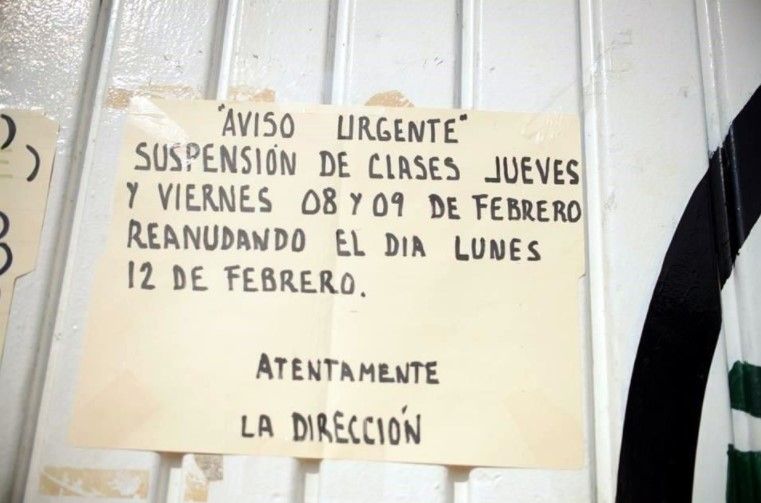 "AVISO URGENTE"
SUSPENSIÓN DE CLASES JUEVES
Y VIERNES 08 Y 09 DE FEBRERO
REANUDANDO EL DIA LUNES
12 DE FEBRERO.
ATENTAMENTE
LA DIRECCIÓN